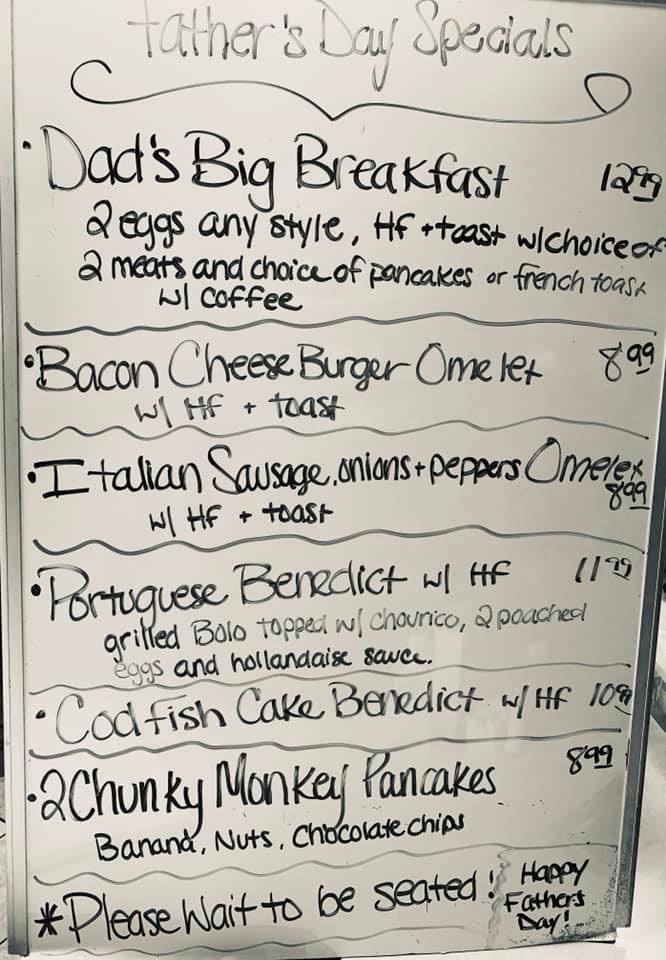 Father's Day Specials
• Dad's Big Breakfast 12.99
2 eggs any style, HF + toast w/choice of
2 meats and choice of pancakes or french toast
w/ coffee
• Bacon Cheese Burger Omelet 8.99
w/ HF + toast
• Italian Sausage, onions + peppers Omelet
8.99
w/ HF + toast
• Portuguese Benedict w/ HF 11.99
grilled Bolo topped w/ chourico, 2 poached
eggs and hollandaise sauce.
• Codfish Cake Benedict w/ HF 10.99
• 2 Chunky Monkey Pancakes 8.99
Banana, Nuts, Chocolate chips
* Please Wait to be seated!
Happy
Father's
Day!